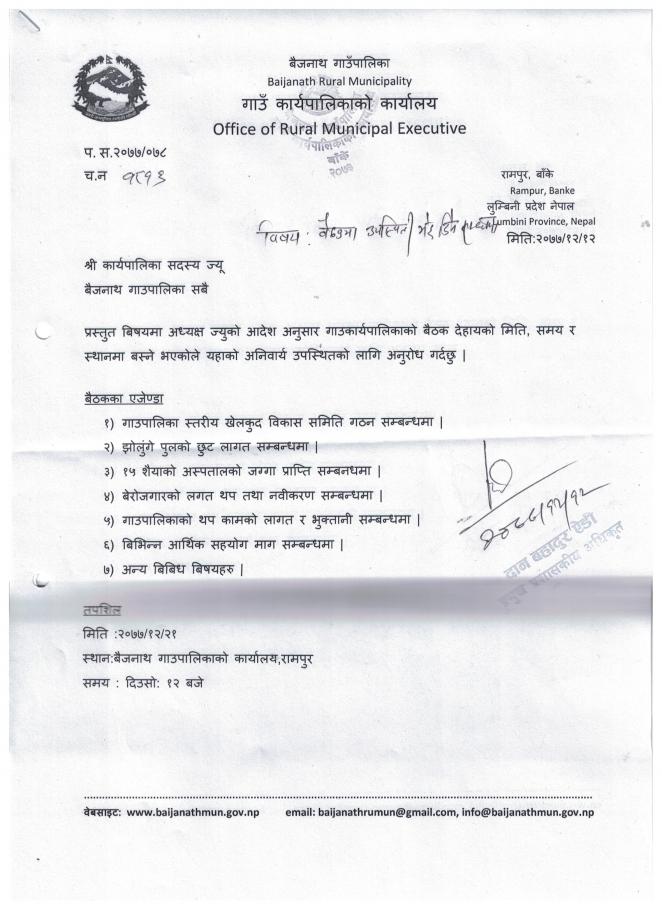 बैजनाथ गाउँपालिका
Baijanath Rural Municipality
गाउँ कार्यपालिकाको कार्यालय
Office of Rural Municipal Executive
कार्यपालिकाको
बाँके
२०७३
प. स.२०७७/०७८
च.न १९१३
रामपुर, बाँके
Rampur, Banke
लुम्बिनी प्रदेश नेपाल
Lumbini Province, Nepal
विषय : बैठकमा उपस्थिती भई दिने
मिति:२०७७/१२/१२
श्री कार्यपालिका सदस्य ज्यू
बैजनाथ गाउपालिका सबै
प्रस्तुत बिषयमा अध्यक्ष ज्युको आदेश अनुसार गाउकार्यपालिकाको बैठक देहायको मिति, समय र
स्थानमा बस्ने भएकोले यहाको अनिवार्य उपस्थितको लागि अनुरोध गर्दछु |
बैठकका एजेण्डा
१) गाउपालिका स्तरीय खेलकुद विकास समिति गठन सम्बन्धमा |
२) झोलुंगे पुलको छुट लागत सम्बन्धमा |
३) १५ शैयाको अस्पतालको जग्गा प्राप्ति सम्बनधमा |
४) बेरोजगारको लगत थप तथा नवीकरण सम्बन्धमा |
५) गाउपालिकाको थप कामको लागत र भुक्तानी सम्बन्धमा |
६) बिभिन्न आर्थिक सहयोग माग सम्बन्धमा |
७) अन्य बिबिध बिषयहरु |
२०७७/१२/१२
दान बहादुर ऐडी
प्रमुख प्रशासकीय अधिकृत
तपशिल
मिति :२०७७/१२/२१
स्थान:बैजनाथ गाउपालिकाको कार्यालय,रामपुर
समय : दिउसो: १२ बजे
वेबसाइट: www.baijanathmun.gov.np email: baijanathrumun@gmail.com, info@baijanathmun.gov.np